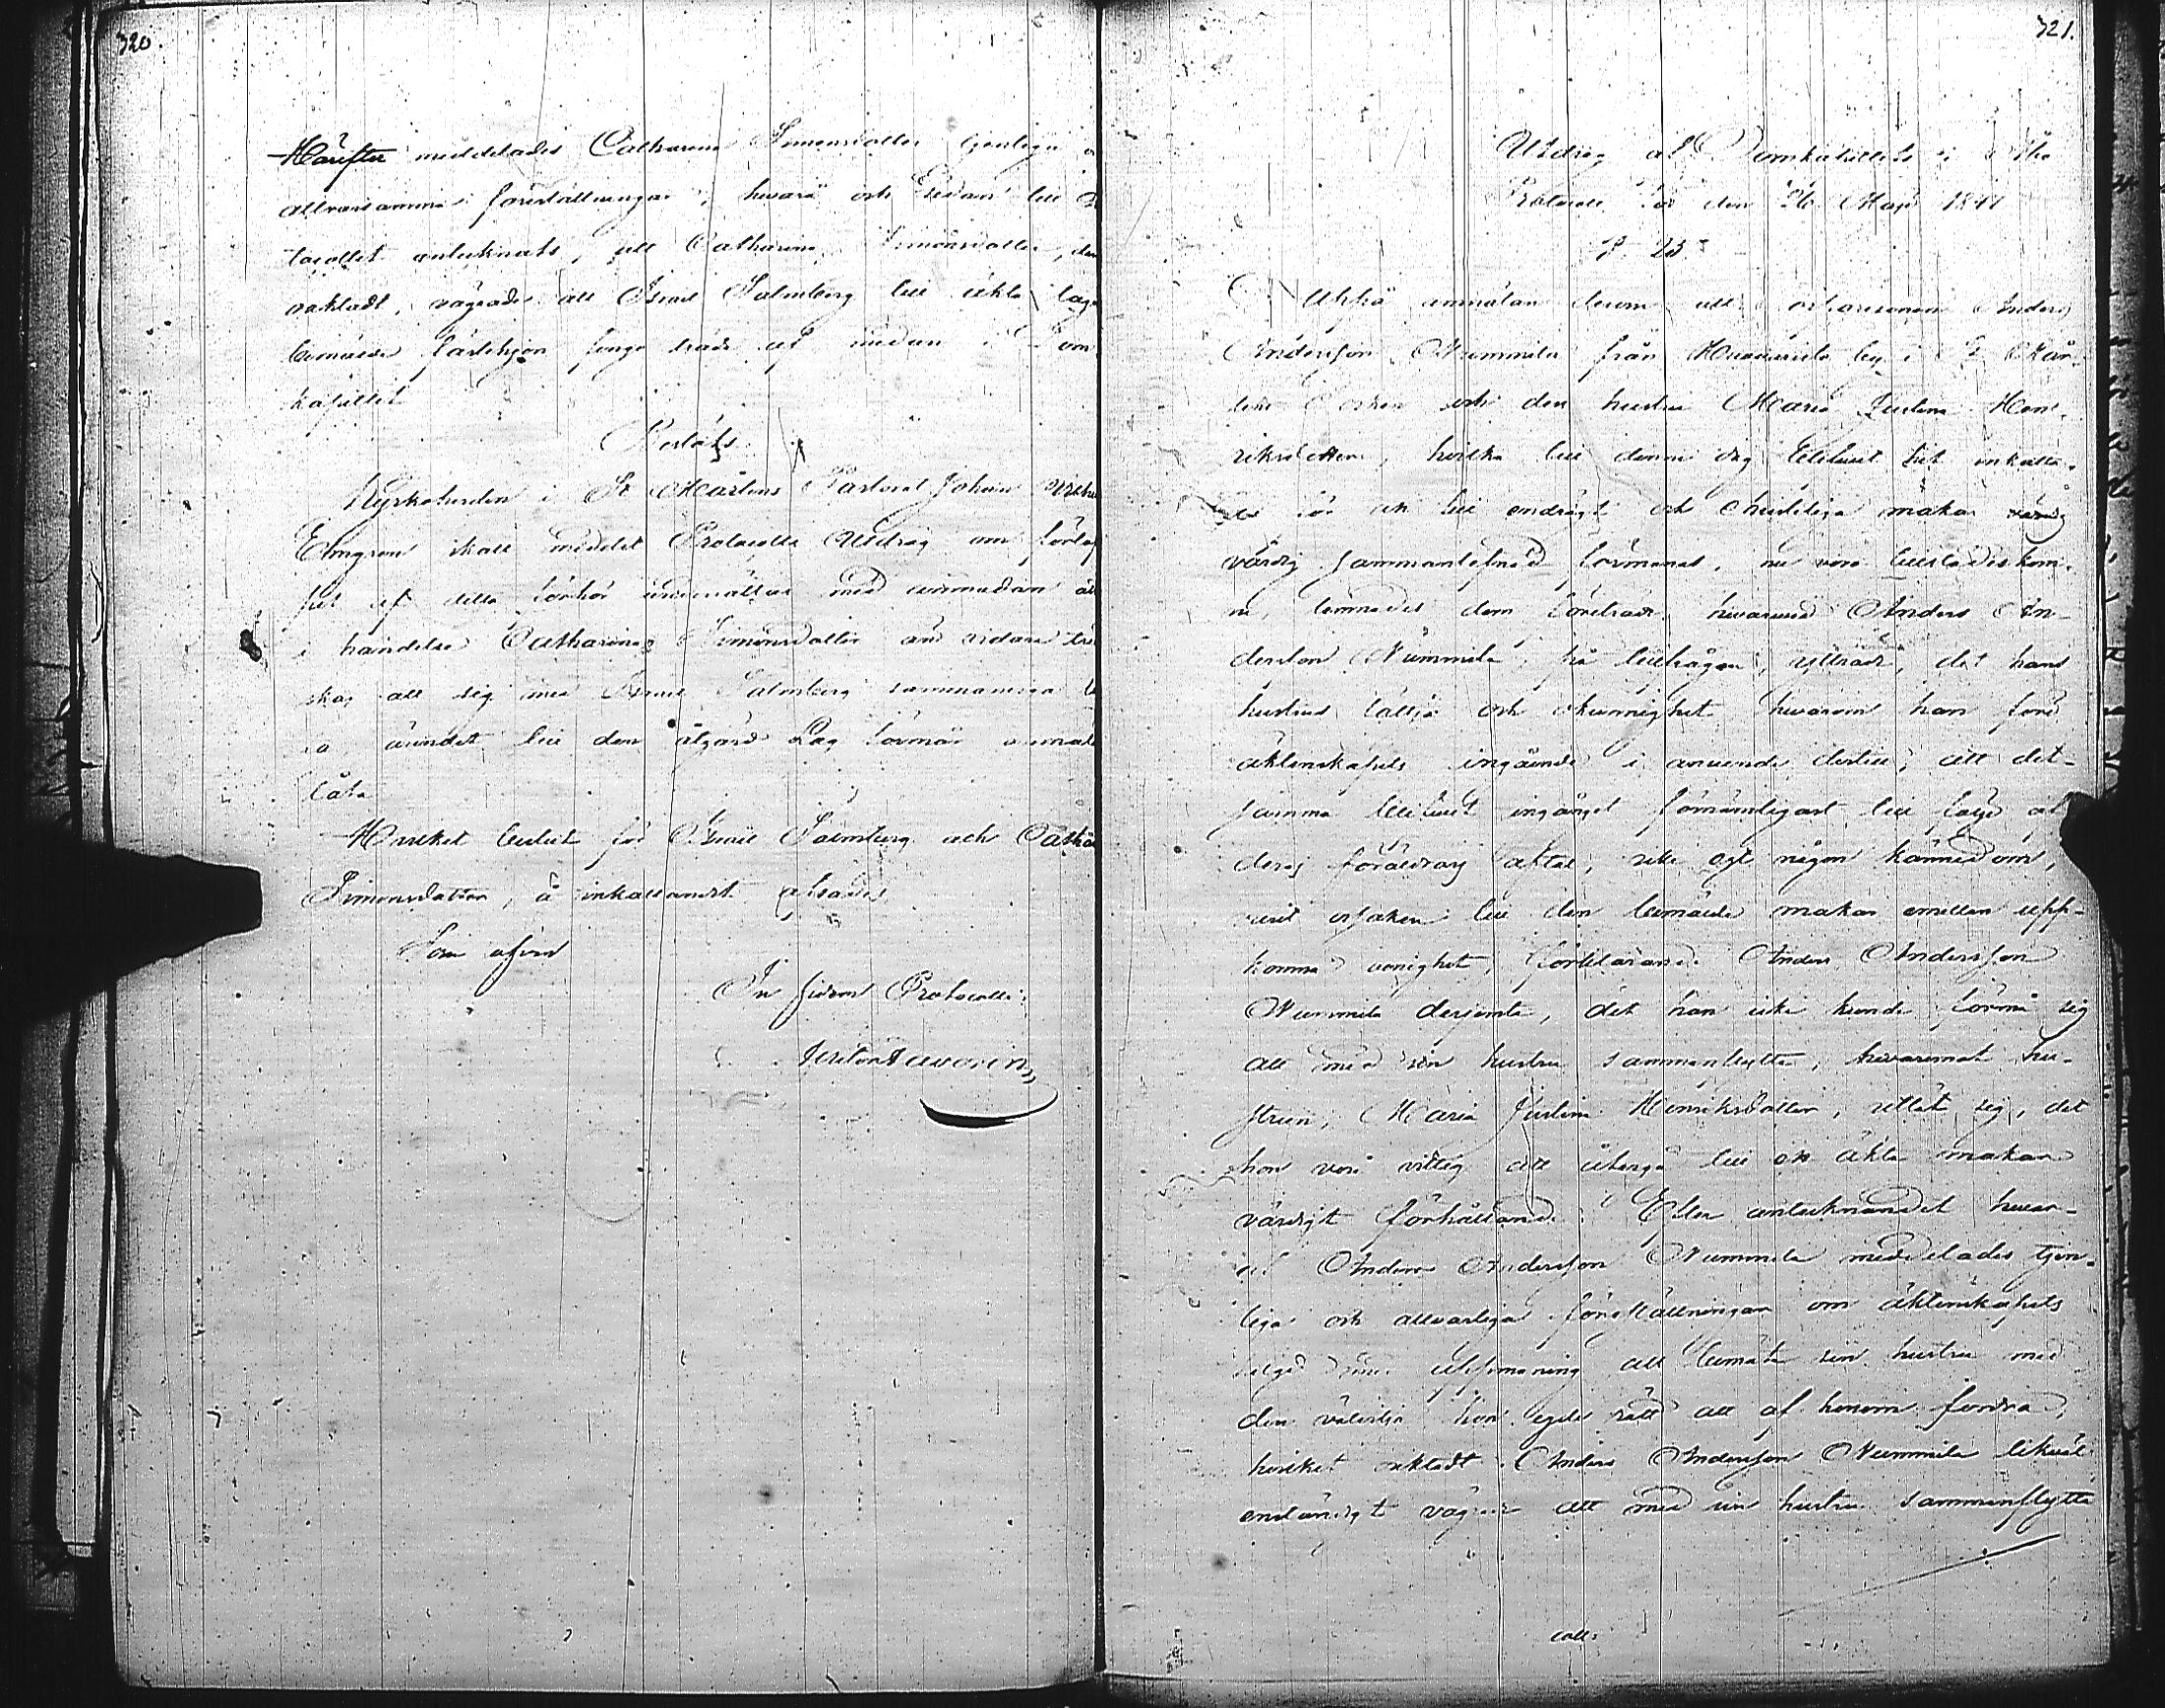 320.
Härefter meddelades Catharina Simonsdotter tjenliga
allvarsamma föreställningar, hwarå och sedan till
tocollet antecknats, att Catharina Simonsdotter,
oaktadt, vägrade att Israel Salmberg till äkta taga
bemälde fästehjon fingo träda af medan i Dom-
kapitlet
Beslöts
Kyrkoherden i S:t Mårtens Pastorat Johan
Elmgren skall medelst Protocolls Utdrag om förlop
pet af detta förhör underrättas med anmodan
i händelse Catharina Simonsdotter än vidare
skar att sig med Israel Salmberg sammanviga
ärendet till den åtgärd Lag förmår anmäla
låta
Hvilket beslut för Israel Salmberg och Catha
Simonsdotter, å inkallandet afsades
Som ofvan
In fidem Protocolli:
321.
Utdrag af Domkapitlets i Åbo
Protocoll för den 26 Maji 1841
§ 23.
Uppå anmälan derom att Anders
Andersson Nummila från by i S:t Mår-
tens Socken och den hustru Maria Justina Hen-
riksdotter, hvilka till denne dag blifvit hit inkalla-
de för att till endrägt och christeliga makar
värdig sammanlefnad förmanas, nu voro tillstädeskom-
ne, lemnades dem företräde hvarmed Anders An-
dersson Nummila, på tillfrågan, yttrade, det hans
hustrus lättja och okunnighet hwarom han före
äktenskapets ingående i anseende dertill, att det-
samma blifvit ingånget förnämligast till följd af
deras föräldrars aftal, icke egt någon kännedom,
varit orsaken till den bemälde makar emellan upp-
komna oenighet, förklarande Anders Andersson
Nummila derjemte, det han icke kunde förmå sig
att med sin hustru sammanflytta, hvaremot hu-
strun, Maria Justina Henriksdotter, utlät sig, det
hon vore villig att återgå till ett äkta makar
värdigt förhållande. Efter antecknandet hvar-
af Anders Andersson Nummila meddelades tjen-
liga och allvarliga föreställningar om äktenskapets
helgd samt uppmaning att bemöta sin hustru med
den välvilja hon egde rätt att af honom fordra,
hvilket oaktadt Anders Andersson Nummila likväl
enständigt vägrade att med sin hustru sammanflytta